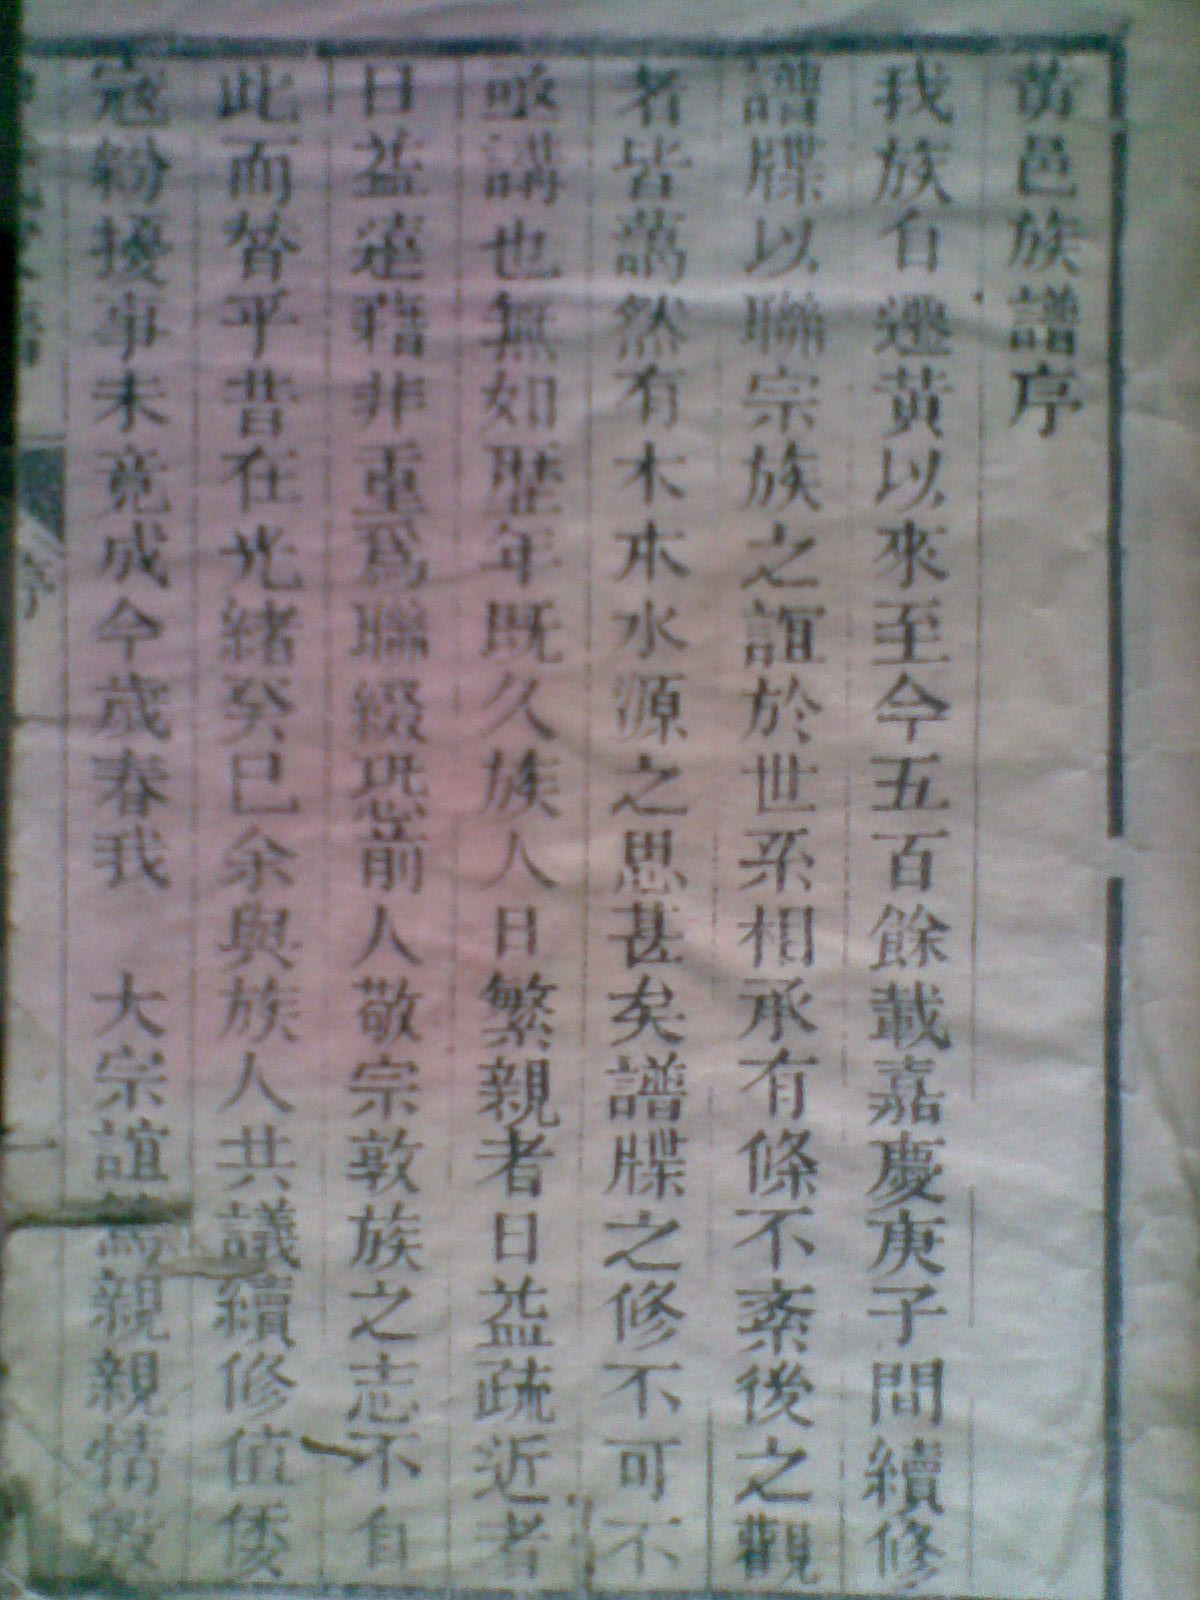 黃邑族譜序
我族自遷黃以來至今五百餘載嘉慶庚子間續修
譜牒以聯宗族之誼於世系相承有條不紊後之觀
者皆藹然有木本水源之思甚矣譜牒之修不可不
亟講也無如歷年既久族人日繁親者日益疏近者
日益遠藉非重爲聯綴恐前人敬宗敦族之志不自
此而替乎昔在光緒癸巳余與族人共議續修值倭
寇紛擾事未竟成今歲春我　大宗誼篤親親情殷
序
一